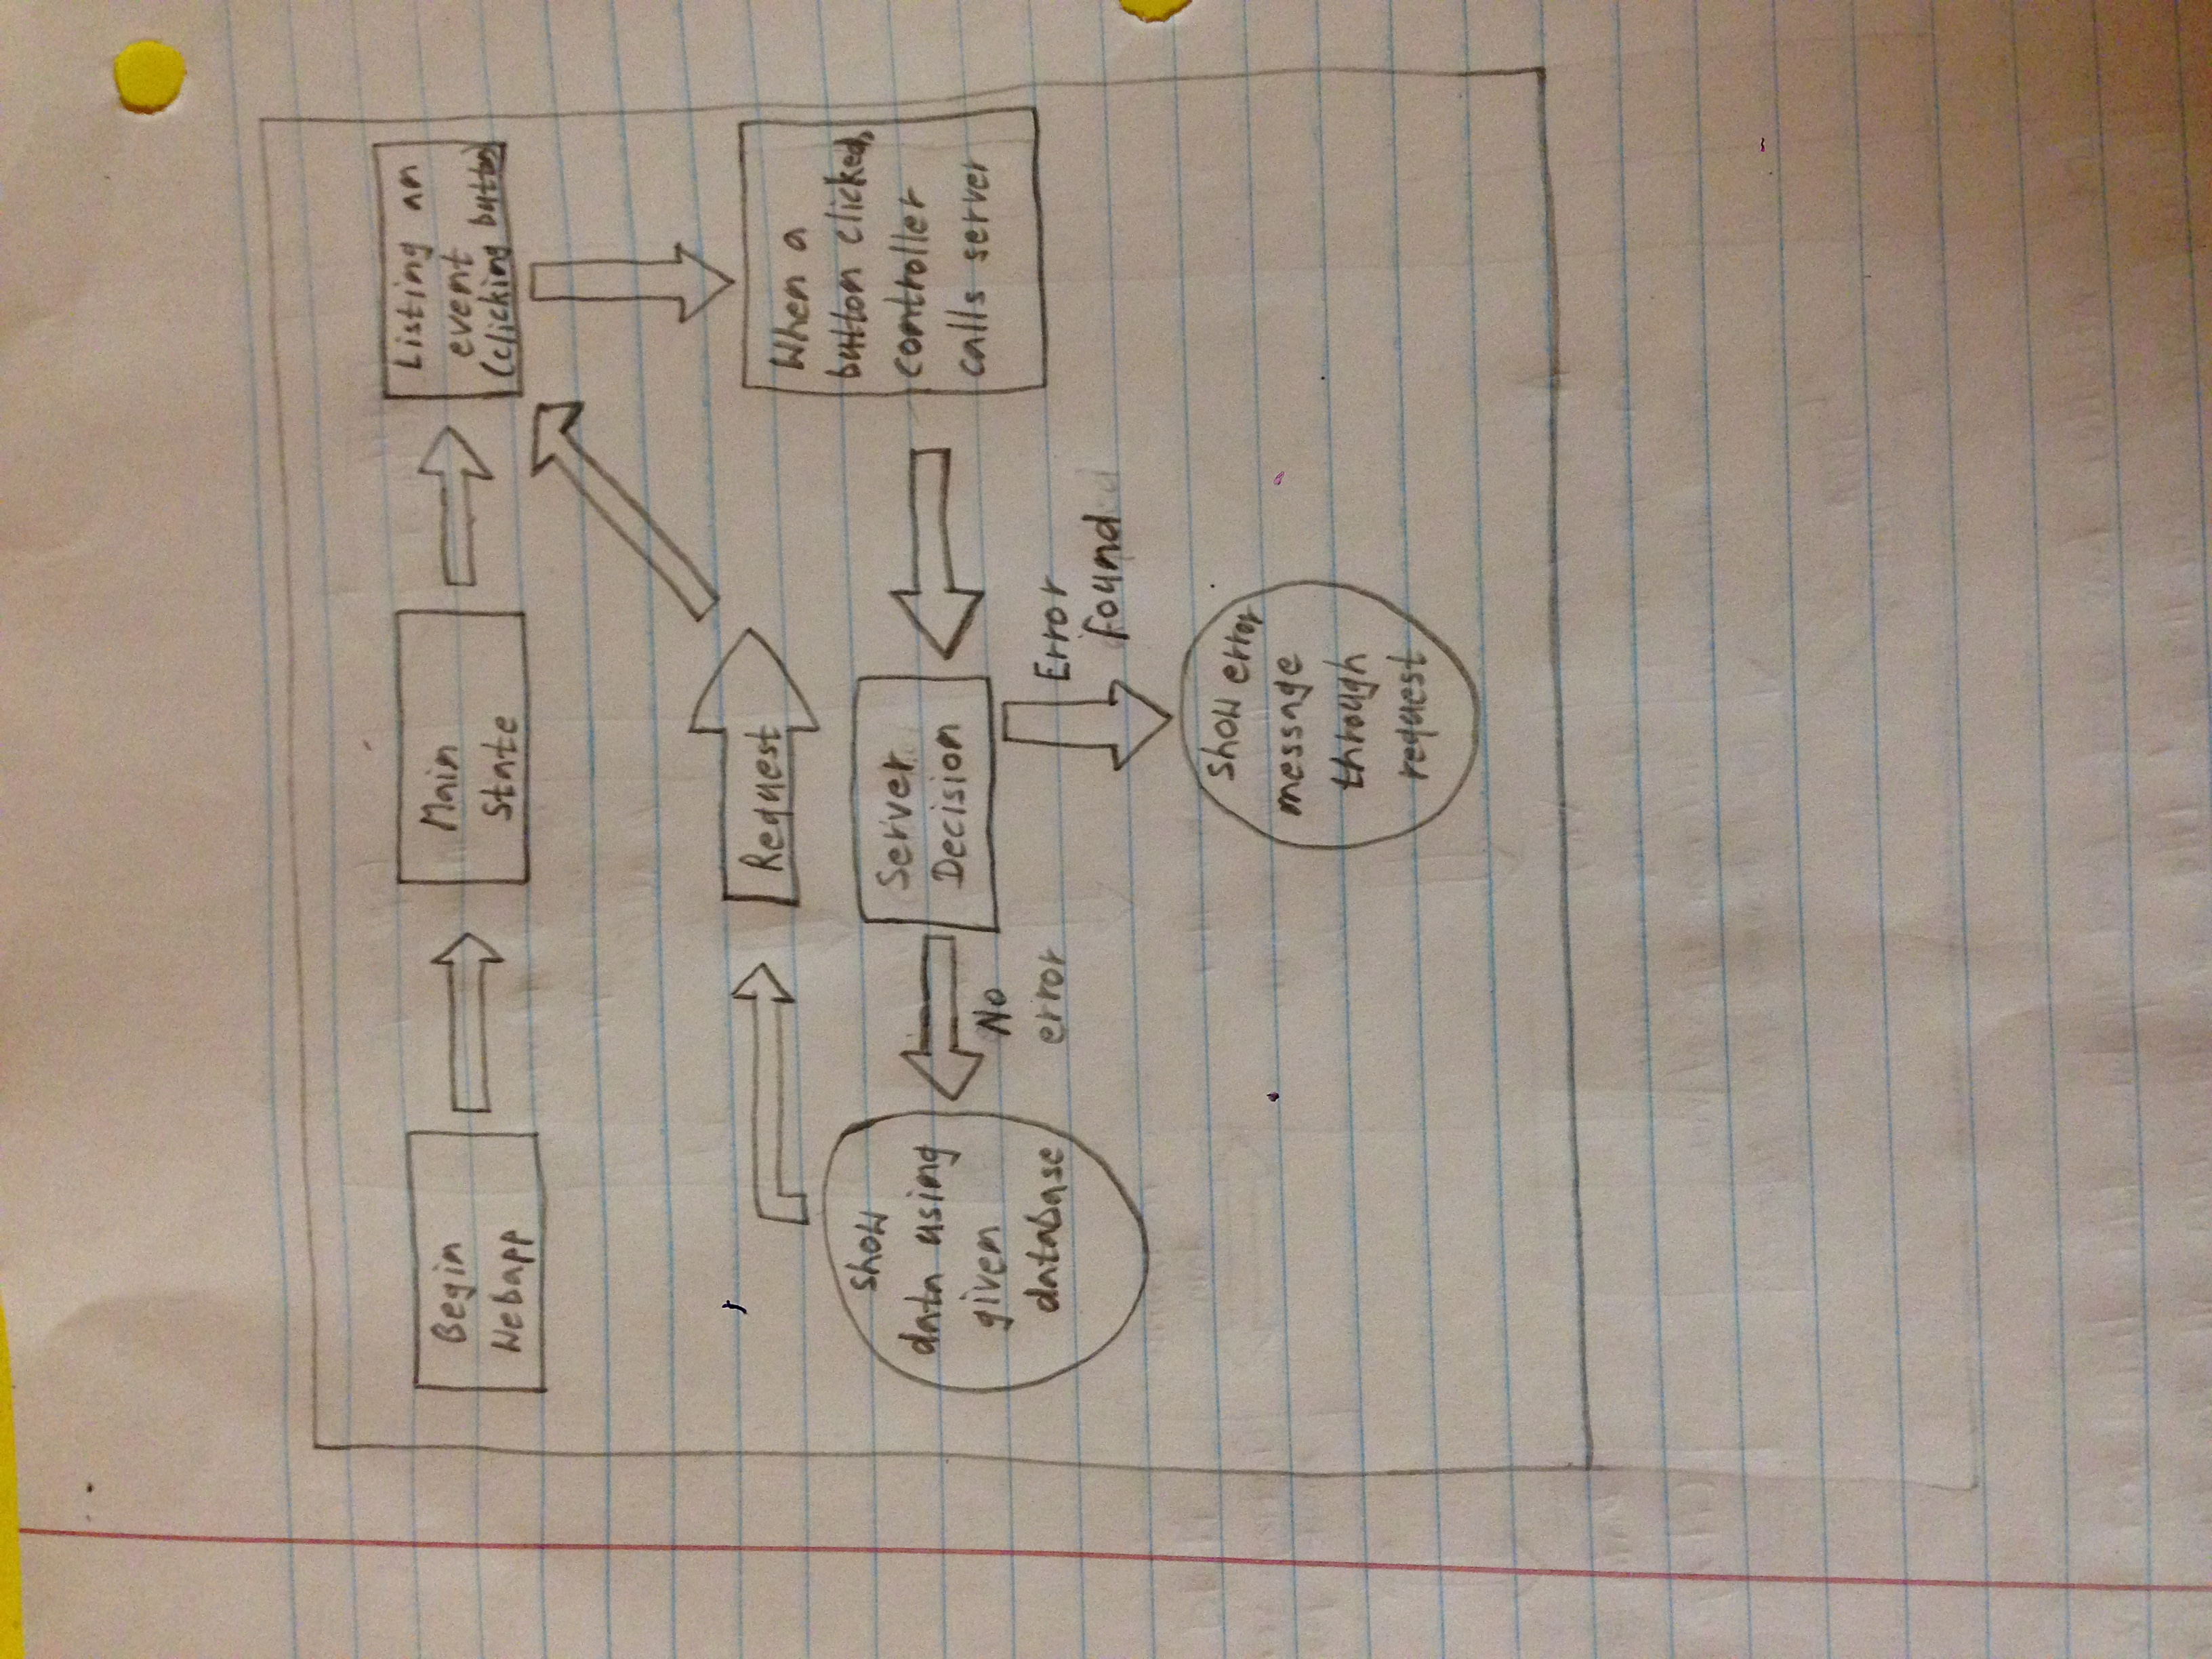 Begin
Webapp
Main
State
Listing an
event
(clicking button)
Request
When a
button clicked,
controller
calls server
Server
Decision
No
error
show
data using
given
database
Error
found
show error
message
through
request